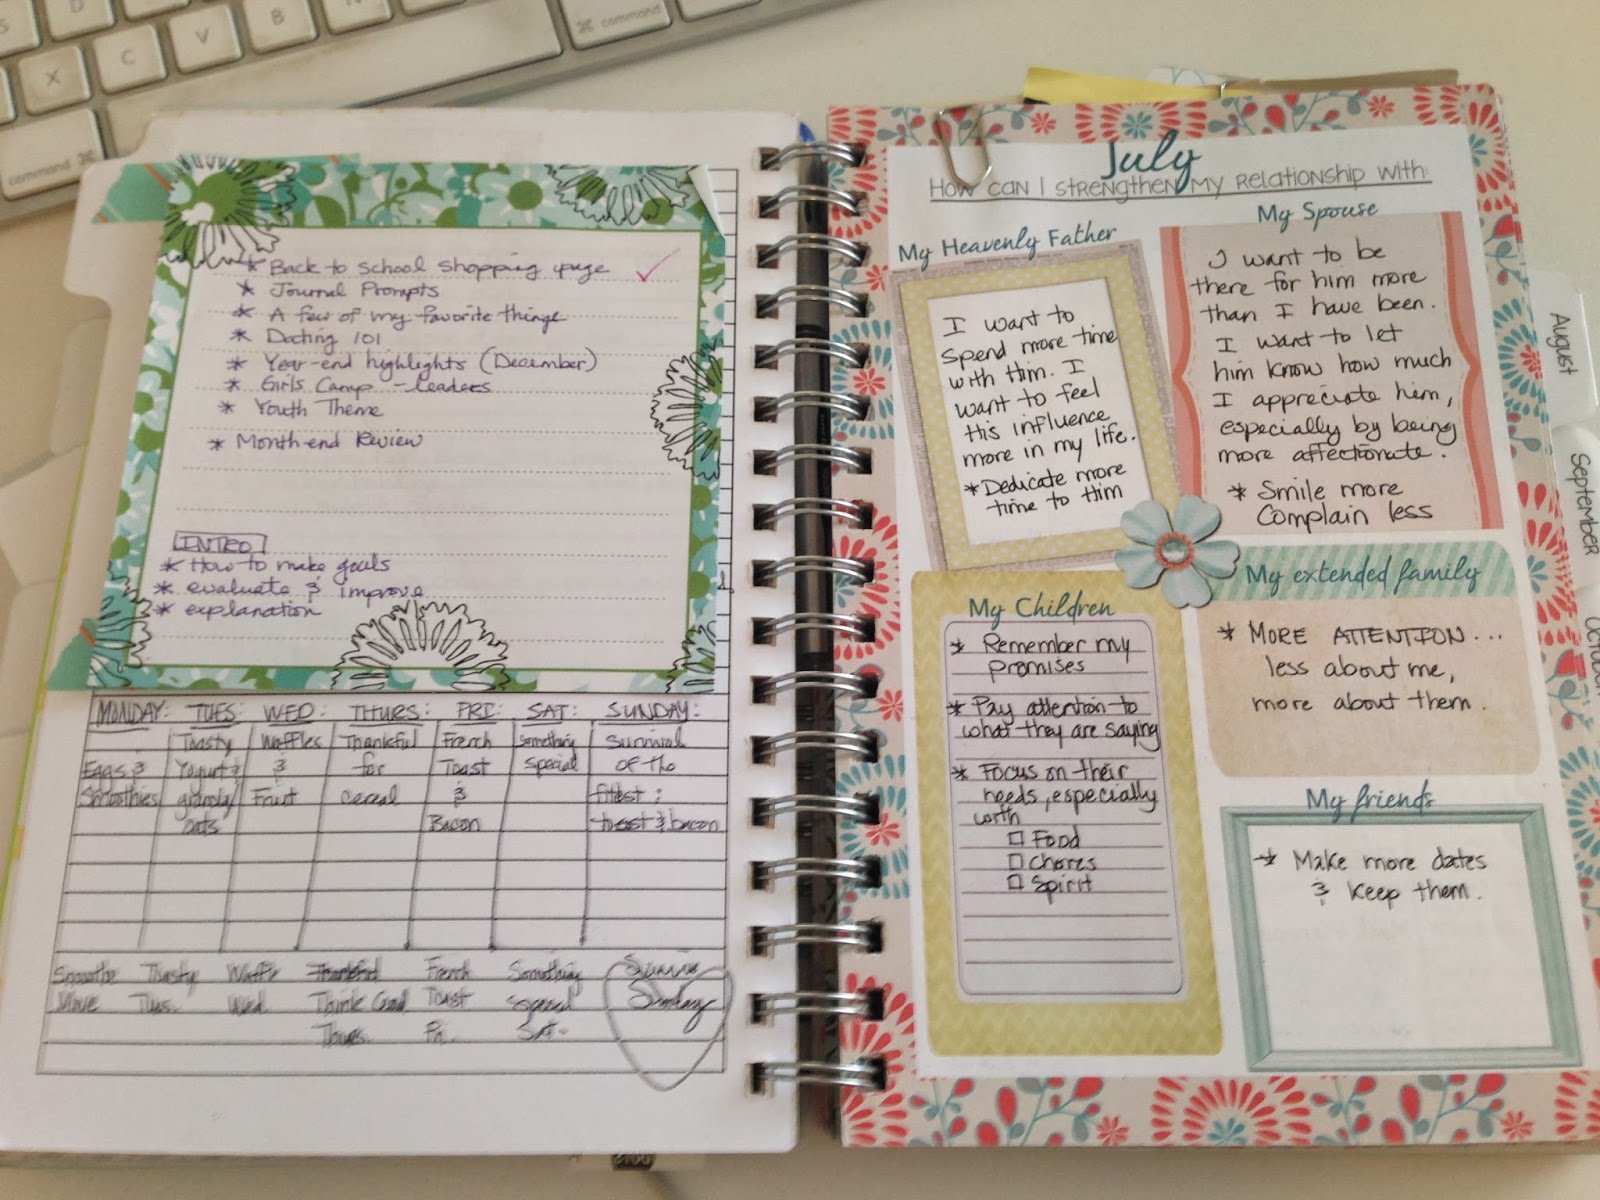 X
C
V
B
N
⌘ command
command ⌘
* Back to school shopping page ✓
* Journal Prompts
* A few of my favorite things
* Dating 101
* Year-end highlights (December)
* Girls Camp - Leaders
* Youth Theme
* Month-end Review
INTRO
* How to make goals
* evaluate & improve
* explanation
MONDAY: TUES: WED: THURS: FRI: SAT: SUNDAY:
Toasty Waffles Thankful French Something Survival
Eggs & Yogurt & & for Toast special of the
Smoothies granola/ Fruit cereal & fittest:
oats Bacon toast & bacon
Smoothie Toasty Waffle Thankful French Something
Tues. Wed. Toast Special Sunday
Thurs. Sat.
July
HOW CAN I STRENGTHEN MY RELATIONSHIP WITH:
My Heavenly Father
I want to
spend more time
with Him. I
want to feel
His influence
more in my life.
* Dedicate more
time to Him
My Spouse
I want to be
there for him more
than I have been.
I want to let
him know how much
I appreciate him,
especially by being
more affectionate.
* Smile more
Complain less
My Children
* Remember my
promises
* Pay attention to
what they are saying
* Focus on their
needs, especially
with
☐ Food
☐ Chores
☐ Spirit
My extended family
* MORE ATTENTION...
less about me,
more about them.
My friends
* Make more dates
& keep them.
August
September
October